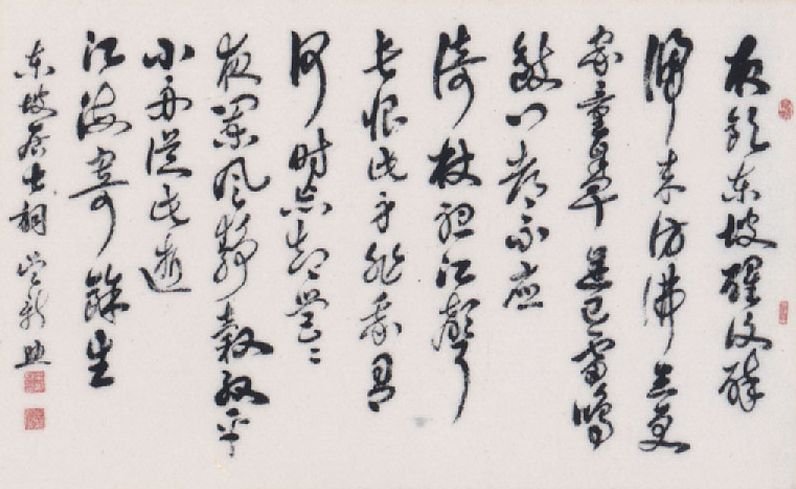 夜饮东坡醒复醉
归来仿佛三更
家童鼻息已雷鸣
敲门都不应
倚杖听江声
长恨此身非我有
何时忘却营〻
夜阑风静縠纹平
小舟从此逝
江海寄馀生
东坡居士词